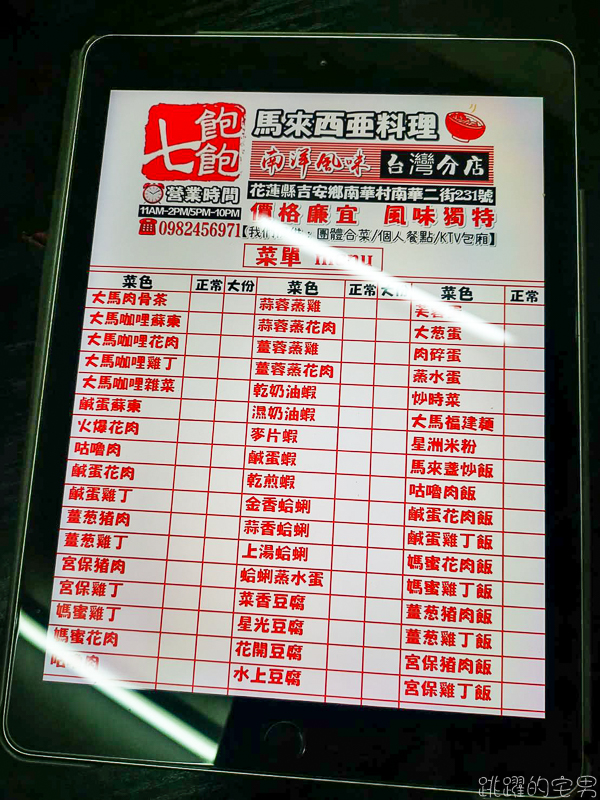 七飽飽
馬來西亞料理
南洋風味 台灣分店
營業時間
11AM-2PM/5PM-10PM
☎0982456971
花蓮縣吉安鄉南華村南華二街231號
價格廉宜 風味獨特
團體合菜/個人餐點/KTV包廂】
菜單
菜色 正常 大份 菜色 正常 菜色 正常
大馬肉骨茶
大馬咖哩蘇東
大馬咖哩花肉
大馬咖哩雞丁
大馬咖哩雜菜
鹹蛋蘇東
火爆花肉
咕嚕肉
鹹蛋花肉
鹹蛋雞丁
薑葱豬肉
薑葱雞丁
宮保豬肉
宮保雞丁
媽蜜雞丁
媽蜜花肉
蒜蓉蒸雞
蒜蓉蒸花肉
薑蓉蒸雞
薑蓉蒸花肉
乾奶油蝦
濕奶油蝦
麥片蝦
鹹蛋蝦
乾煎蝦
金香蛤蜊
蒜香蛤蜊
上湯蛤蜊
蛤蜊蒸水蛋
菜香豆腐
星光豆腐
花開豆腐
水上豆腐
大葱蛋
肉碎蛋
蒸水蛋
炒時菜
大馬福建麵
星洲米粉
馬來盞炒飯
咕嚕肉飯
鹹蛋花肉飯
鹹蛋雞丁飯
媽蜜花肉飯
媽蜜雞丁飯
薑葱豬肉飯
薑葱雞丁飯
宮保豬肉飯
宮保雞丁飯
跳躍的宅男